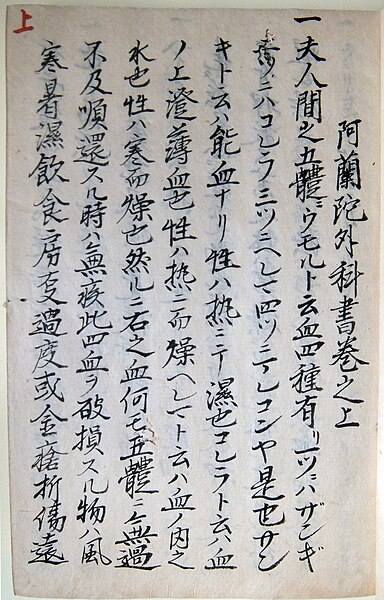 上
阿蘭陀外科書巻之上
一夫人間之五體ニウモルト云血四種有リ一ツニハザンギ
ニハコレラ三ツニヘレマ四ツニテレコンヤ是也サン
キト云ハ能血ナリ性ハ熱ニ〆濕也コレラト云ハ血
ノ上澄薄血也性ハ热ニ而燥ヘレマト云ハ血ノ内之
水也性ハ寒而燥也然ルニ右之血何モ五體ニ無過
不及順還スル時ハ無疾此四血ヲ破損スル物ハ風
寒暑濕飲食房叓過度或金瘡折傷遠